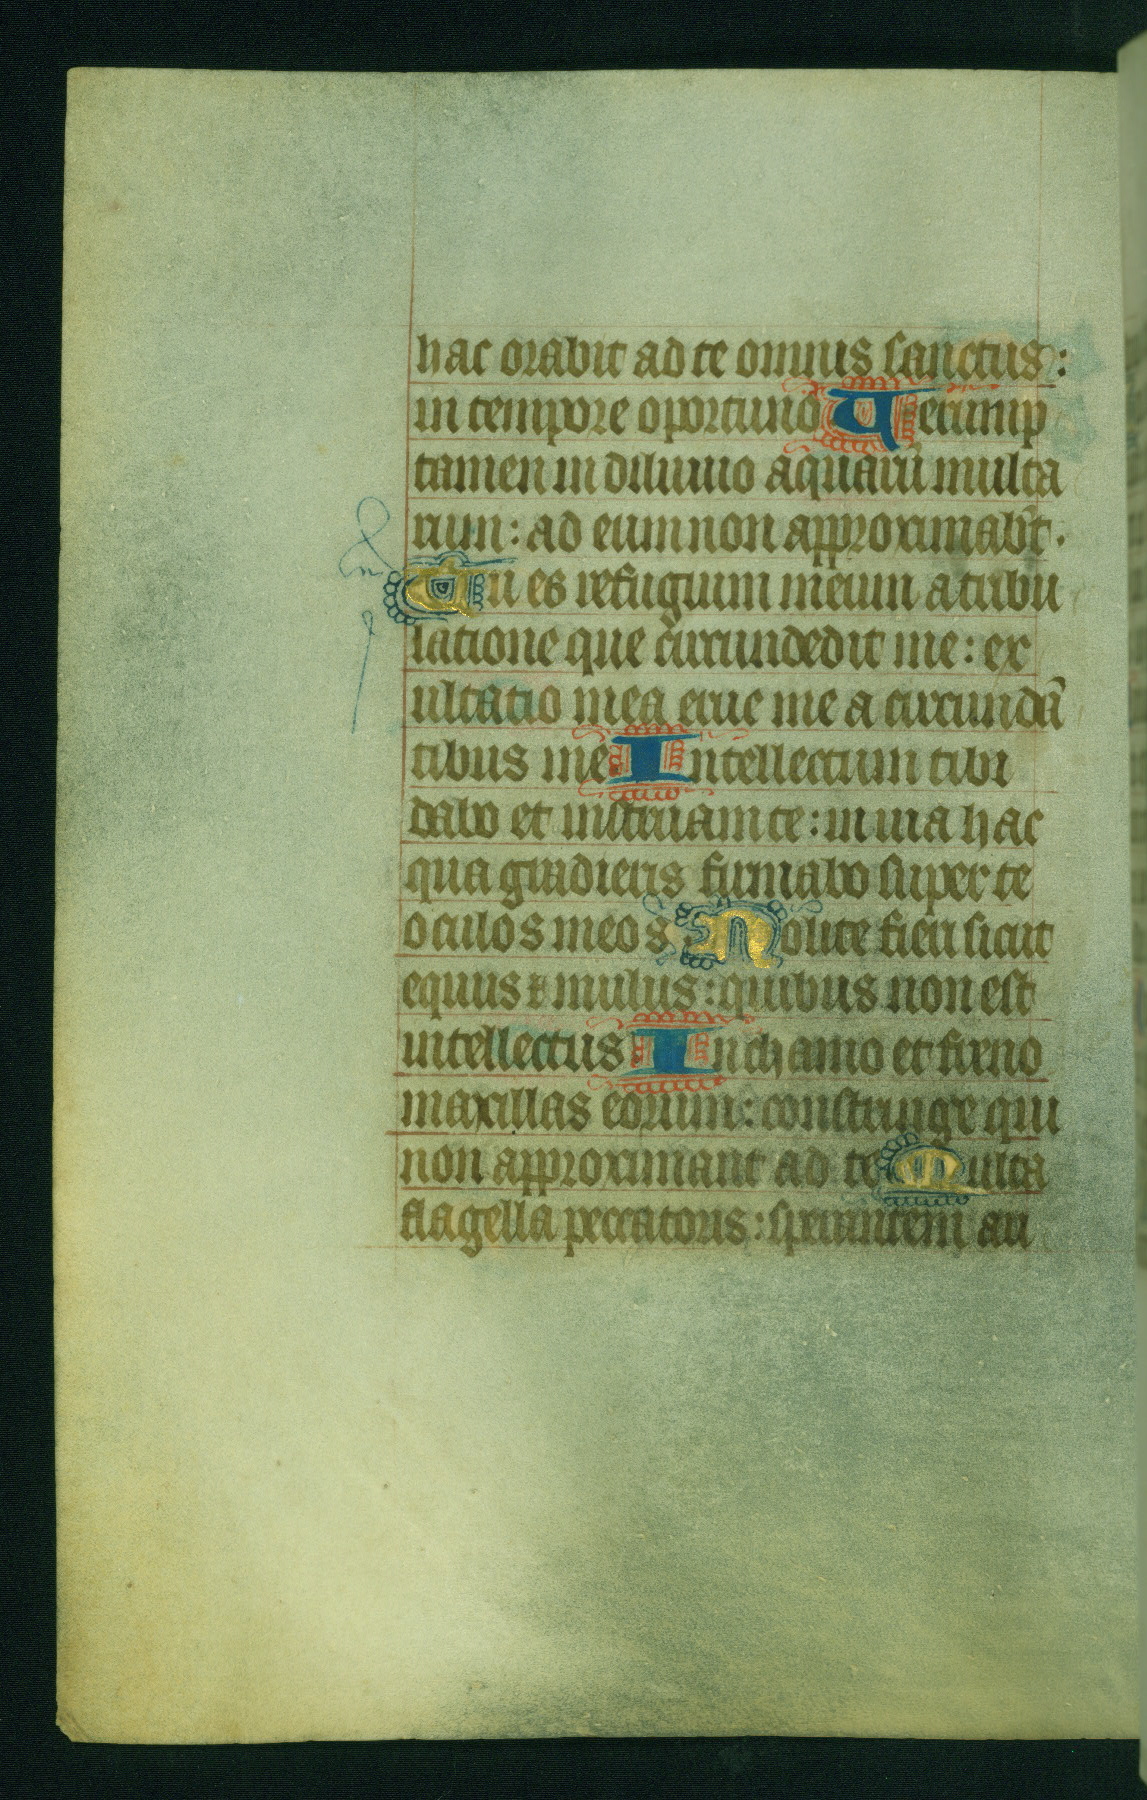 hac orabit ad te omnis sanctus:
in tempore oportuno Uerump
tamen in diluuio aquarū multa
rum: ad eum non approximabūt.
Tu es refugium meum a tribu
latione que circundedit me: ex
ultatio mea erue me a circundā
tibus me Intellectum tibi
dabo et instruam te: in uia hac
qua gradieris firmabo super te
oculos meos Nolite fieri sicut
equus ⁊ mulus: quibus non est
intellectus In chamo et freno
maxillas eorum: constringe qui
non approximant ad te Multa
flagella peccatoris: sperantem au